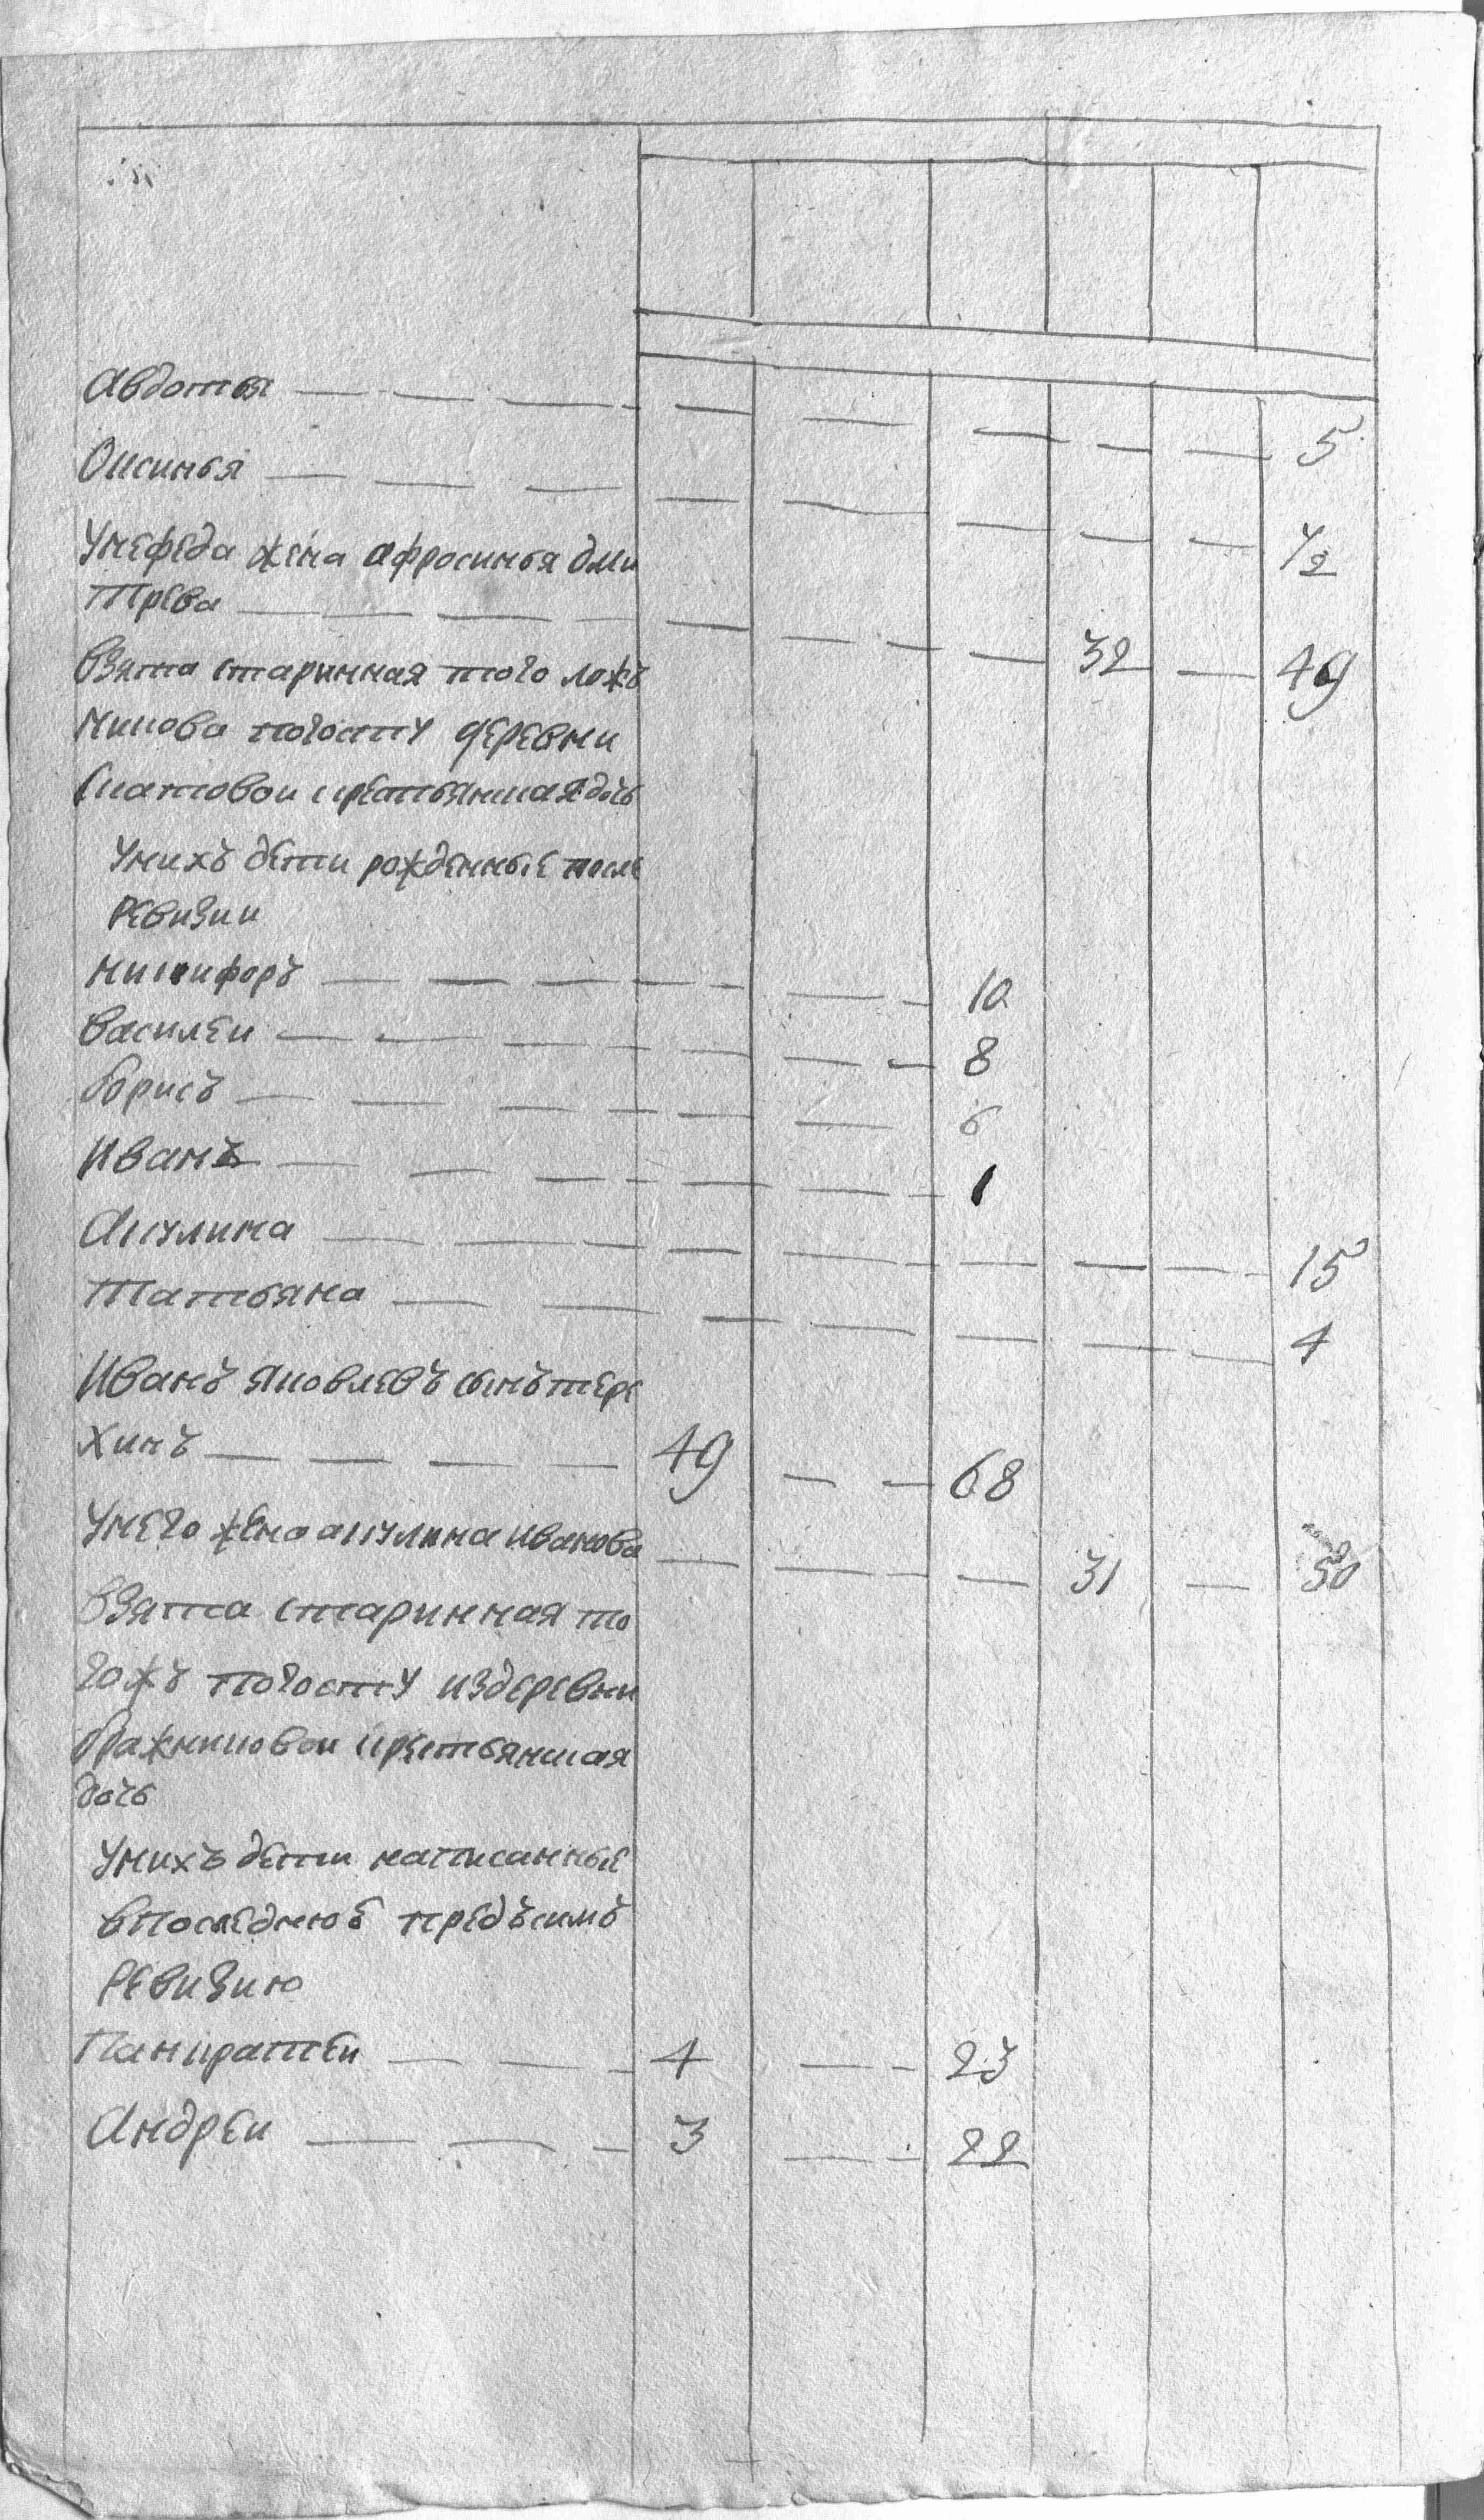 Авдотья — — — — — — — — — 5
Оксинья — — — — — — — — 1/2
Унефеда жена афросинья дми
трева — — — — — — — — 32 — 49
Взята старинная того логжъ
Никова погосту деревни
крестьянская дочь
Унихъ дети рожденные после
ревизии
Никифоръ — — — — — — — 10
Василеи — — — — — — — 8
борисъ — — — — — — 6
Иванъ — — — — — — — 1
Акулина — — — — — — — — — 15
Татьяна — — — — — — — 4
Иванъ яковлевъ сынъ тере
хинъ — — — — 49 — — 68
Унего жена акулина иванова — — — — 31 — 50
Взята старинная то
гожъ погосту издеревни
бражниковои крестьянская
дочь
Унихъ дети написанные
впоследнюю предъсимъ
ревизию
Панкратеи — — — 4 — — 23
Андреи — — — 3 — — 22